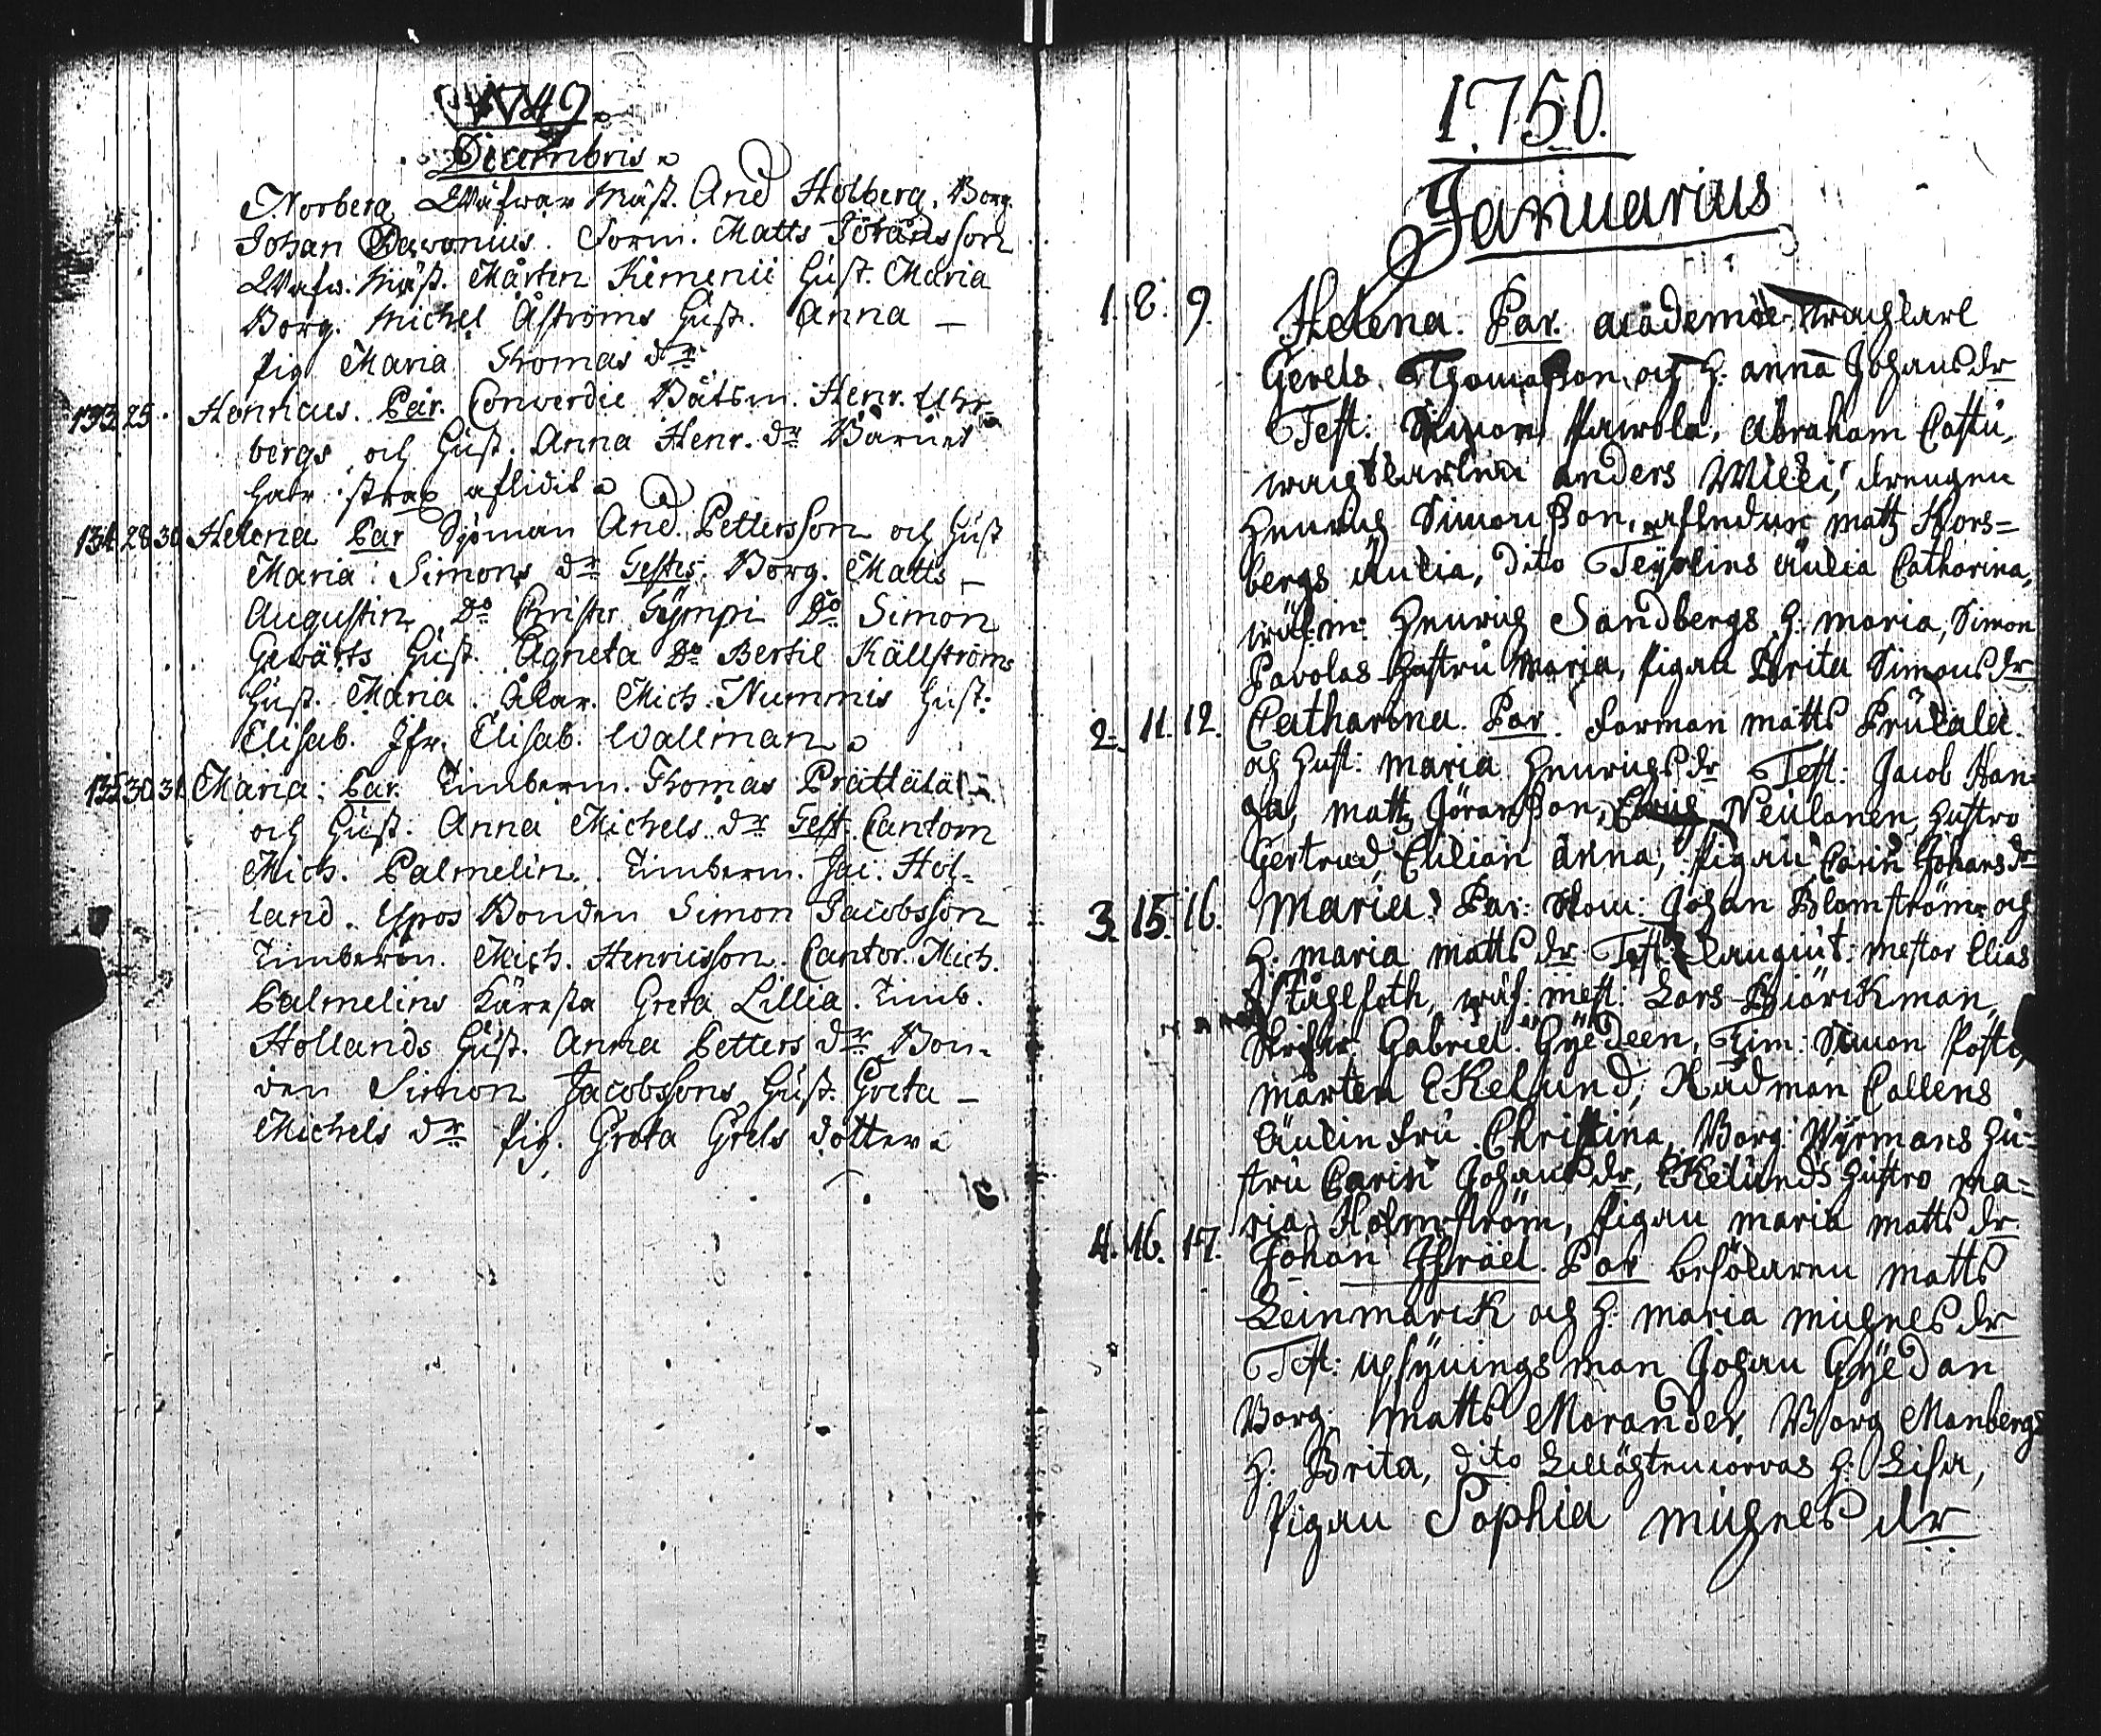 1749
Decembris
Norberg Wäfvar Mäst. And Holberg. Borg.
Johan Form. Matts Jöransson
Wäfv. Mäst. Mårten Kimenii Hust. Maria
Borg. Michel Åströms Hust. Anna –
pig Maria Thomas dr.
133 25. Henricus. Par. Båtsm. Henr. Uhr-
bergs och Hust. Anna Henr. dr Barnet
har strax aflidit
134 28 30 Helena Par Sjöman And. Pettersson och Hust
Maria Simons dr Testes. Borg. Matts –
Augustin Do Christer Tympi Do Simon
Gewärts Hust. Agneta Do Bertil Källströms
Hust. Maria. Åkar. Mich. Nummis Hust:
Elisab. Jfr. Elisab. Wallman
135 30 31 Maria: Par. Timberm. Thomas Prättälä
och Hust. Anna Michels dr Test. Cantorn
Mich. Palmelin. Timberm. Jac. Hol-
land. Uspos Bonden Simon Jacobsson
Timberm. Mich. Henricsson. Cantor. Mich.
Palmelins Käresta Greta Lillia. Timb.
Hollands Hust. Anna Petters dr Bon-
den Simon Jacobssons Hust. Greta –
Michels dr pig. Greta Grels dotter
1750.
Januarius
1. 8. 9. Helena. Par. academiæ wachtkarl
Gevels Thomasson och H. anna Johans dr
Test: Simon Pawola, Abraham Castu,
wachtkarlen anders Willi, drengen
Henrich Simonsson, afledne matz Kors=
bergs änkia, dito Teyslins änkia Catharina,
wäf: m: Henrich Sandbergs H: maria, Simon
Pavolas hustru Maria, pigan Brita Simons dr
2. 11. 12. Catharina. Par. Forman matts Prukala
och Hust: maria Henrichs dr Test: Jacob Han-
ga, matz Göransson, Neulanen, hustro
Gertrud, anna, pigan Carin Johans dr
3. 15. 16. Maria. Par: Skom: Johan Blomström och
H: maria matts dr Test: mestar Elias
Ståhlfoth, wäf: mest: Lars Biörckman,
Gabriel Gÿedeen, Tim: Simon Posti,
mårten Ekelund, Rådman Collens
änkiefru Christina, Borg: Wÿrmans hu-
stru Carin Johans dr, Ekelunds hustro ma=
ria Holmström, pigan maria matts dr
4. 16. 17. Johan Israel. Par besökaren matts
Leinmarck och H: maria michels dr
Test: upsÿnings man Johan Gÿedan
Borg: matts Morander, Borg Manbergs
H: Brita, dito H: Lisa,
pigan Sophia michels dr